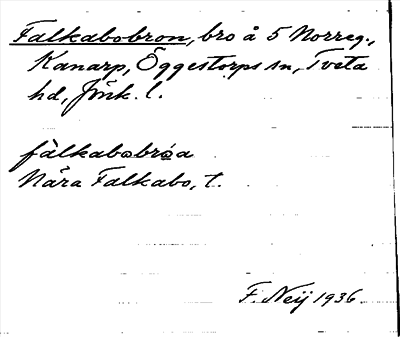 Falkabobron, bro å 5 Norreg.,
Kanarp, Öggestorps sn, Tveta
hd, Jönk. l.
fàlkabobrøa
Nära Falkabo, t.
F. Neij 1936.